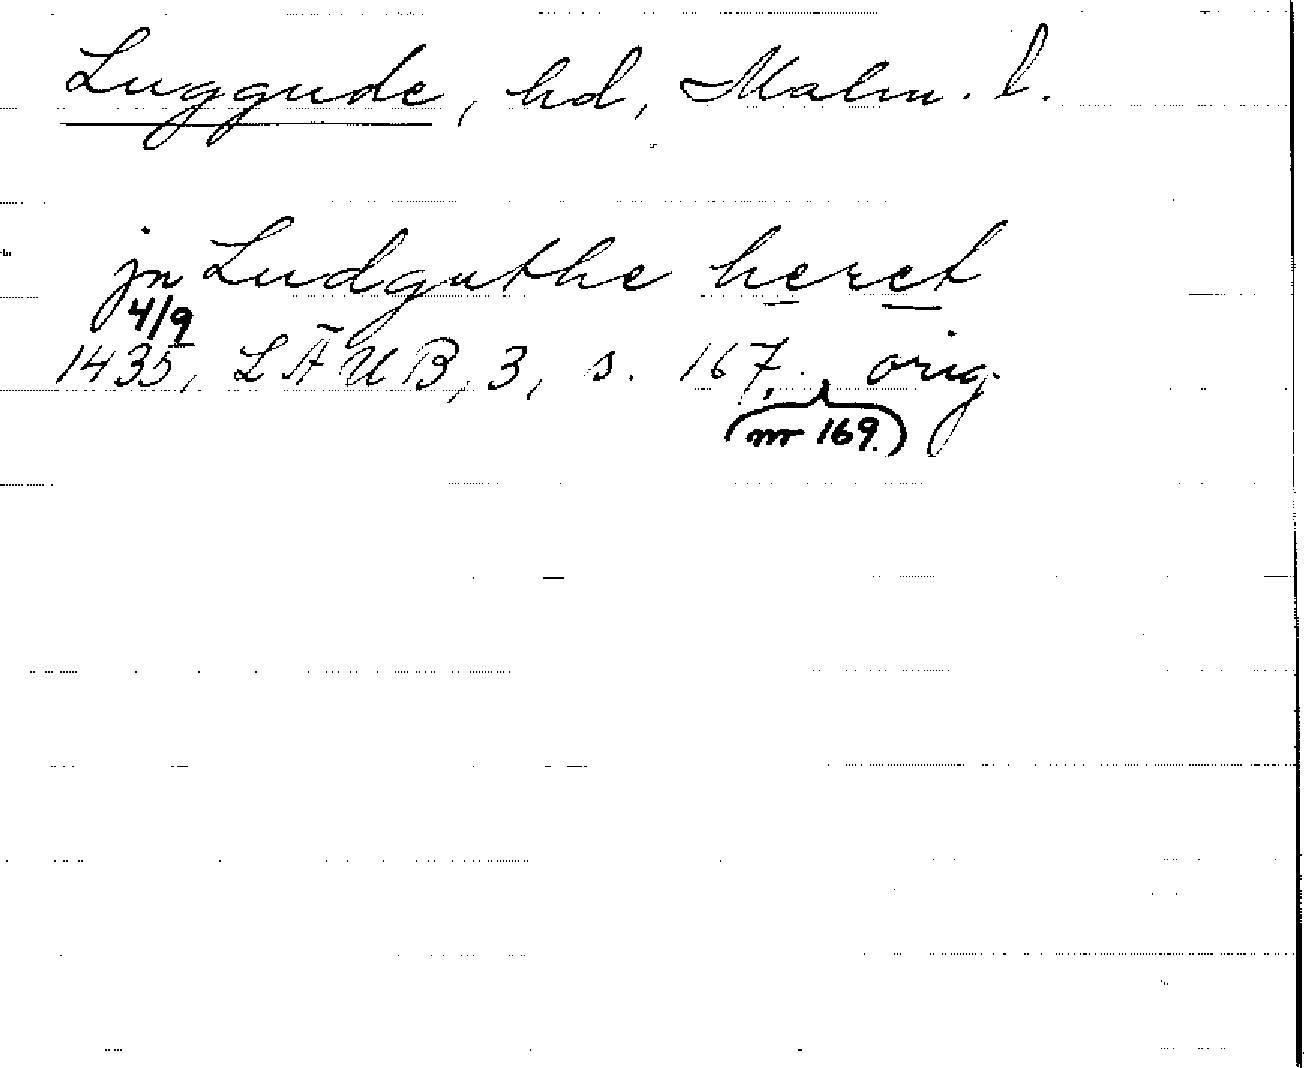 Luggude, hd, Malm. l.
jn Ludguthe heret
4/9
1435, LÄUB, 3, s. 167, orig.
nr 169.